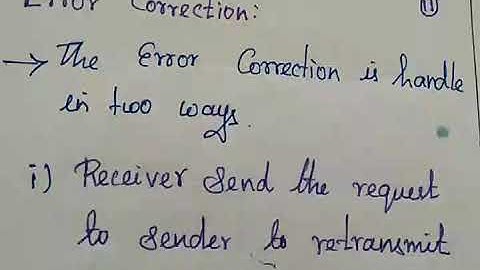 Error Correction: 11
→ The Error Correction is handle
in two ways.
i) Receiver send the request
to sender to re-transmit